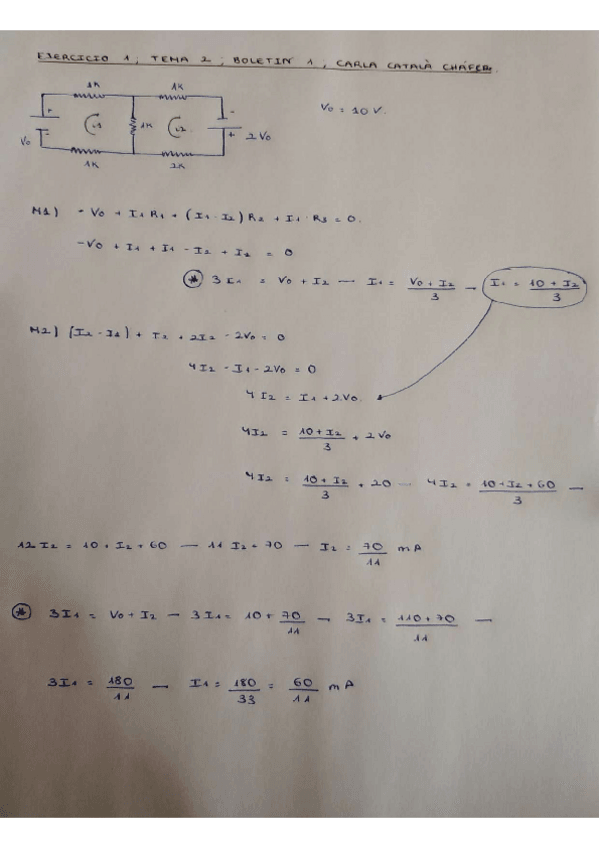 EJERCICIO 1, TEMA 2, BOLETIN 1, CARLA CATALÀ CHÁFER.
1K 1K
+ i1 1K i2 -
Vo - + 2Vo
1K 2K
Vo = 10 V.
M1) - Vo + I1 R1 + (I1 - I2) R2 + I1 · R3 = 0.
-Vo + I1 + I1 - I2 + I1 = 0
* 3I1 = Vo + I2 — I1 = Vo + I2 / 3 → I1 = 10 + I2 / 3
M2) (I2 - I1) + I2 + 2I2 - 2Vo = 0
4I2 - I1 - 2Vo = 0
4I2 = I1 + 2Vo.
4I2 = 10 + I2 / 3 + 2Vo
4I2 = 10 + I2 / 3 + 20 — 4I2 = 10 + I2 + 60 / 3 —
12I2 = 10 + I2 + 60 — 11 I2 = 70 — I2 = 70 / 11 mA
* 3I1 = Vo + I2 — 3I1 = 10 + 70 / 11 — 3I1 = 110 + 70 / 11 —
3I1 = 180 / 11 — I1 = 180 / 33 = 60 / 11 mA